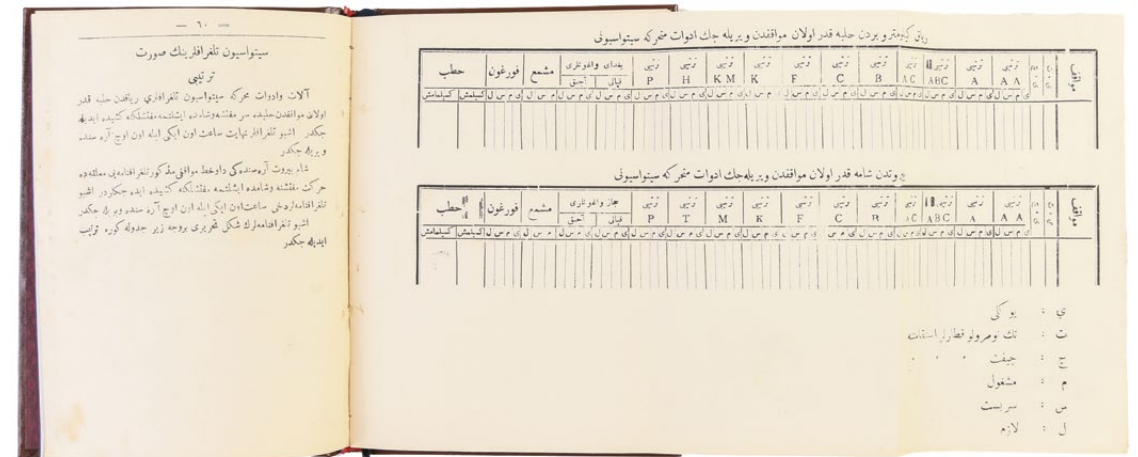 — ٦٠ —
سيتواسيون تلغرافلرينك صورت
ترتيبى
آلات وادوات محركه سيتواسيون تلغرافلرى رياقدن حلبه قدر
اولان مواقفدن حلبده سر مفتشه وشامده ايشلتمه مفتشلكنه كشيده ايديله
جكدر اشبو تلغرافلر نهايت ساعت اون ايكى ايله اون اوچ آره سنده
ويريله جكدر
شام بيروت آره سنده كى داوخط مواقفى مذكور تلغرافنامه يى معلقه ده
حركت مفتشنه وشامده ايشلتمه مفتشلكنه كشيده ايده جكلردر اشبو
تلغرافنامه لردخى ساعت اون ايكى ايله اون اوچ آره سنده ويريله جكدر
اشبو تلغرافنامه لرك شكل تحريرى بروجه زير جدوله كوره ترتيب
ايديله جكدر
رياق كيلومترو بردن حلبه قدر اولان مواقفدن ويريله جك ادوات متحركه سيتواسيونى
مواقف
تيپى A A
تيپى A
تيپى ABC
تيپى A C
تيپى B
تيپى C
تيپى F
تيپى K
تيپى K M
تيپى H
تيپى P
بغداى واغونلرى
قپالى آچيق
مشمع
فورغون
حطب
كسيلمامش كسيلمش
بيروتدن شامه قدر اولان مواقفدن ويريله جك ادوات متحركه سيتواسيونى
مواقف
تيپى A A
تيپى A
تيپى ABC
تيپى A C
تيپى B
تيپى C
تيپى F
تيپى K
تيپى M
تيپى T
تيپى P
حجاز واغونلرى
قپالى آچيق
مشمع
فورغون
حطب
كسيلمامش كسيلمش
ي : يوكلى
ت : تك نومرولو قطارلر استقامت
ج : جيفت
م : مشغول
س : سربست
ل : لازم